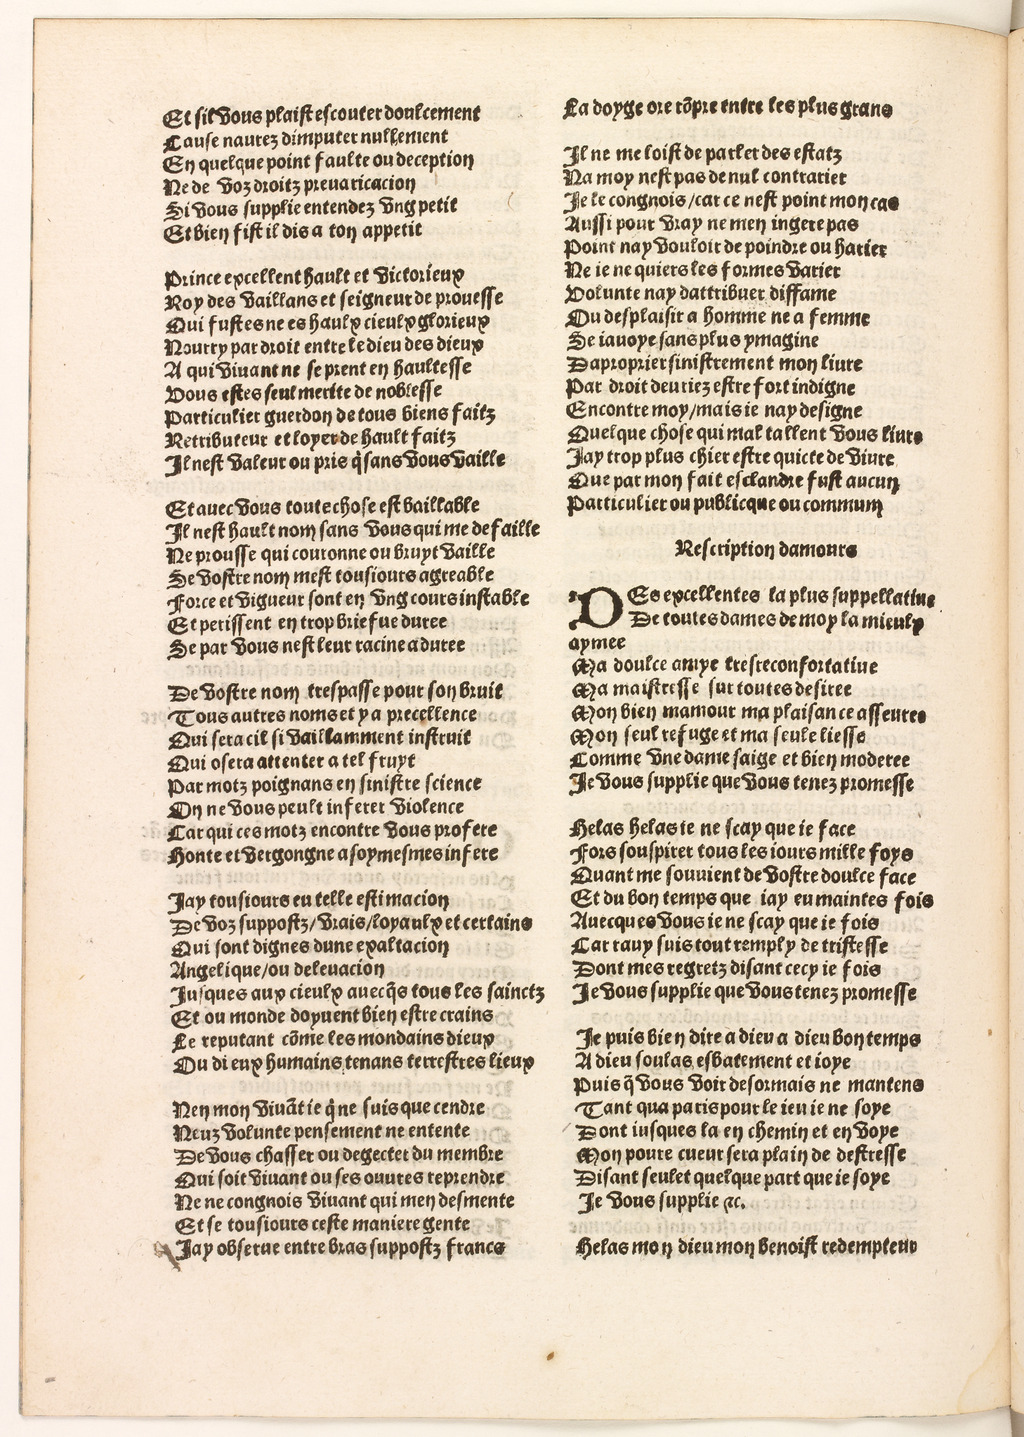 Et sil vous plaist escouter doulcement
Cause naurez dimputer nullement
En quelque point faulte ou deception
Ne de voz droitz preuaricacion
Si vous supplie entendez vng petit
Et bien fist il dis a ton appetit
Prince excellent hault et victorieux
Roy des vaillans et seigneur de prouesse
Qui fustes ne es haulx cieulx glorieux
Nourry par droit entre le dieu des dieux
A qui viuant ne se prent en haultesse
Vous estes seul merite de noblesse
Particulier guerdon de tous biens faitz
Retributeur et loyer de hault faitz
Il nest valeur ou pris q̃ sans vous vaille
Et auec vous toute chose est baillable
Il nest hault nom sans vous qui me defaille
Ne prousse qui couronne ou bruyt vaille
Se vostre nom mest tousiours agreable
Force et vigueur sont en vng cours instable
Et perissent en trop briefue duree
Se par vous nest leur racine aduree
De vostre nom trespasse pour son bruit
Tous autres noms et y a precellence
Qui sera cil si vaillamment instruit
Qui osera attenter a tel fruyt
Par motz poignans en sinistre science
On ne vous peult inferer violence
Car qui ces motz encontre vous profere
Honte et vergongne a soymesmes infere
Jay tousiours eu telle estimacion
De voz suppostz/vrais/loyaulx et certains
Qui sont dignes dune exaltacion
Angelique/ou deleuacion
Jusques aux cieulx auecq̃s tous les sainctz
Et ou monde doyuent bien estre crains
Le reputant cõme les mondains dieux
Ou dieux humains tenans terrestres lieux
Nen mon viuãt ie q̃ ne suis que cendre
Neuz volunte pensement ne entente
De vous chasser ou degecter du membre
Qui soit viuant ou ses ouures reprendre
Ne ne congnois viuant qui men desmente
Et se tousiours ceste maniere gente
Jay obserue entre bras suppostz francs
La doyge ore rõpre entre les plus grans
Il ne me loist de parler des estatz
Na moy nest pas de nul contrarier
Je le congnois/car ce nest point mon cas
Aussi pour vray ne men ingere pas
Point nay vouloir de poindre ou harier
Ne ie ne quiers les formes varier
Volunte nay dattribuer diffame
Ou desplaisir a homme ne a femme
Se iauoye sans plus ymagine
Daproprier sinistrement mon liure
Par droit deuriez estre fort indigne
Encontre moy/mais ie nay designe
Quelque chose qui mal tallent vous liure
Jay trop plus chier estre quicte de viure
Que par mon fait esclandre fust aucun
Particulier ou publicque ou commun
Rescription damours
DEs excellentes la plus suppellatiue
De toutes dames de moy la mieulx
aymee
Ma doulce amye tresreconfortatiue
Ma maistresse sur toutes desiree
Mon bien mamour ma plaisance asseuree
Mon seul refuge et ma seule liesse
Comme vne dame saige et bien moderee
Je vous supplie que vous tenez promesse
Helas helas ie ne scay que ie face
Fors souspirer tous les iours mille foys
Quant me souuient de vostre doulce face
Et du bon temps que iay eu maintes fois
Auecques vous ie ne scay que ie fois
Car rauy suis tout remply de tristesse
Dont mes regretz disant cecy ie fois
Je vous supplie que vous tenez promesse
Je puis bien dire a dieu a dieu bon temps
A dieu soulas esbatement et ioye
Puis q̃ vous voir desormais ne mantens
Tant qua paris pour le ieu ie ne soye
Dont iusques la en chemin et en voye
Mon poure cueur sera plain de destresse
Disant seulet quelque part que ie soye
Je vous supplie ⁊c.
Helas mon dieu mon benoist redempteur